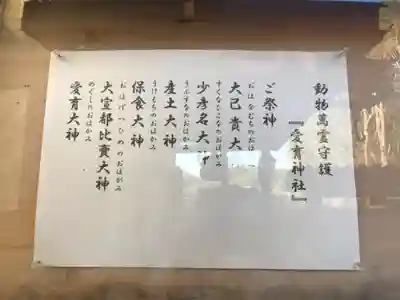 動物萬霊守護
『愛育神社』
ご祭神
おほなむちのおほ
大己貴大
すくなひこなのおほかみ
少彦名大神
うぶすなのおほかみ
産土大神
うけもちのおほかみ
保食大神
おほげつひめのおほかみ
大宜都比賣大神
めぐしのおほかみ
愛育大神